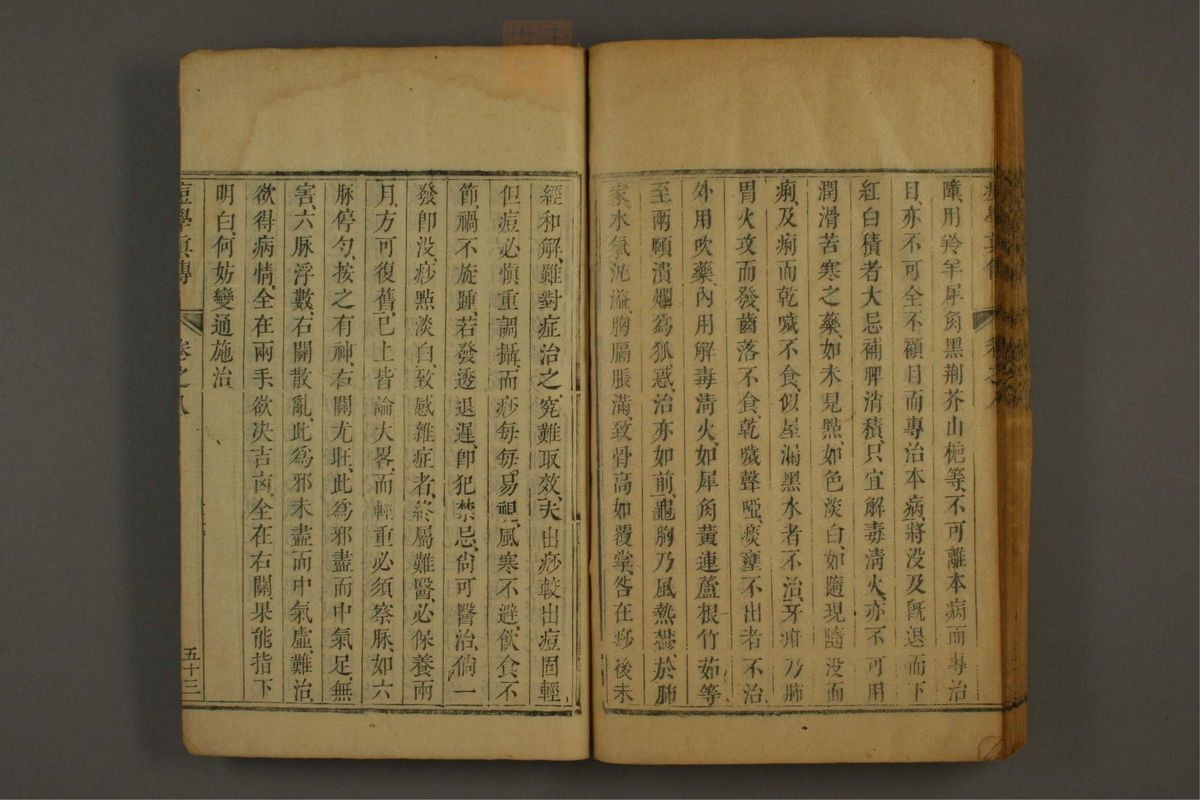 痘學真傳　卷之八
障用羚羊犀角黑荆芥山梔等不可離本病而專治
目亦不可全不顧目而專治本病將没及旣退而下
紅白積者大忌補脾消積只宜解毒清火亦不可用
潤滑苦寒之藥如未見㸃如色淡白如隨現隨没而
痢及痢而乾嘔不食似屋漏黑水者不治牙疳乃肺
胃火攻而發齒落不食乾嘔聲啞痰壅不出者不治
外用吹藥內用解毒清火如犀角黃連蘆根竹茹等
至兩頤潰爛爲狐惑治亦如前龜胸乃風熱鬱於肺
家水氣泛溢胸膈脹滿致骨高如覆掌咎在痧後未
經和解雖對症治之究難取效夫出痧較出痘固輕
但痘必慎重調攝而痧每每易視風寒不避飮食不
節禍不旋踵若發透退遲卽犯禁忌尙可醫治倘一
發卽没痧㸃淡白致感雜症者終屬難醫必保養兩
月方可復舊已上皆論大畧而輕重必須察脉如六
脉停勻按之有神右關尤旺此爲邪盡而中氣足無
害六脉浮數右關散亂此爲邪未盡而中氣虛難治
欲得病情全在兩手欲决吉凶全在右關果能指下
明白何妨變通施治
痘學眞傳　卷之八　五十三